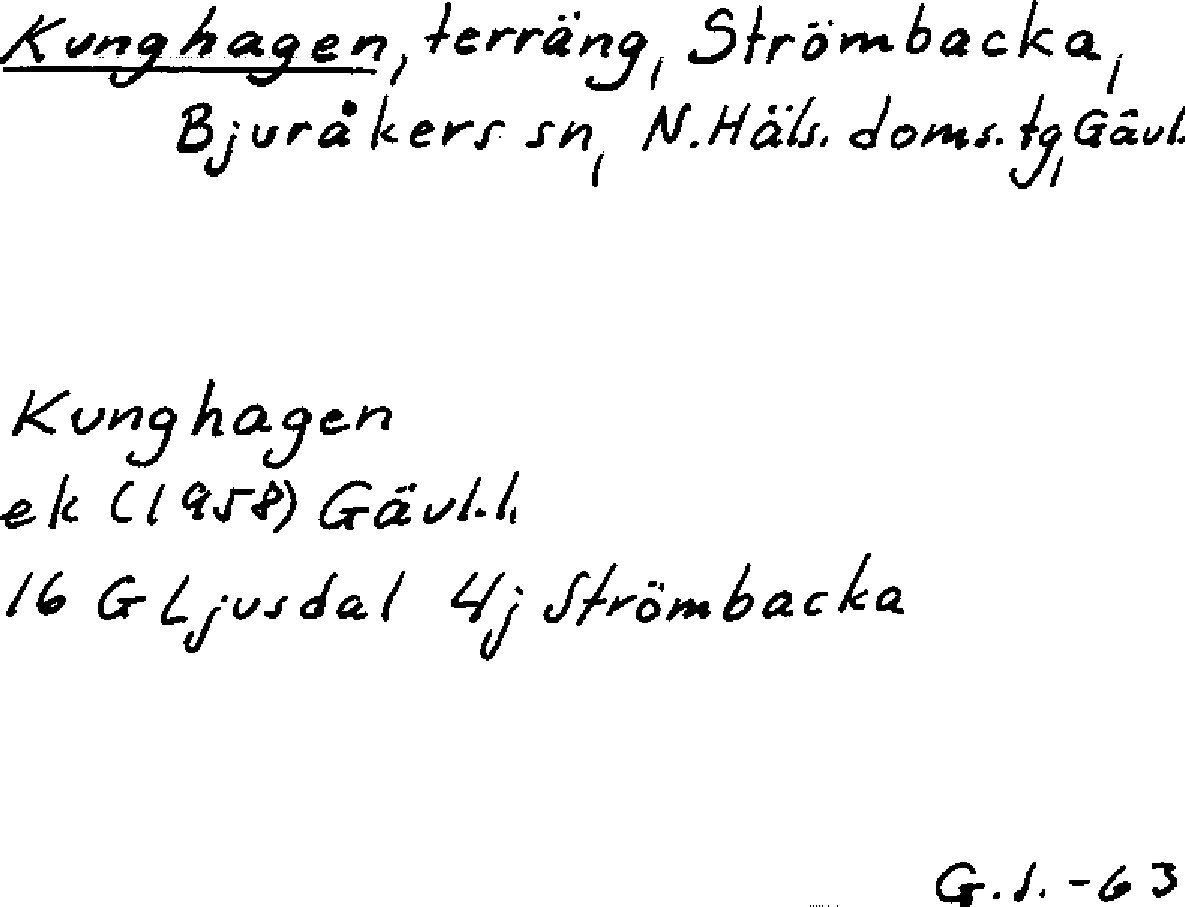 Kunghagen, terräng, Strömbacka,
Bjuråkers sn, N. Häls. doms. tg, Gävl.
Kunghagen
ek (1958) Gävl.l.
16 G Ljusdal 4j Strömbacka
G.S. -63